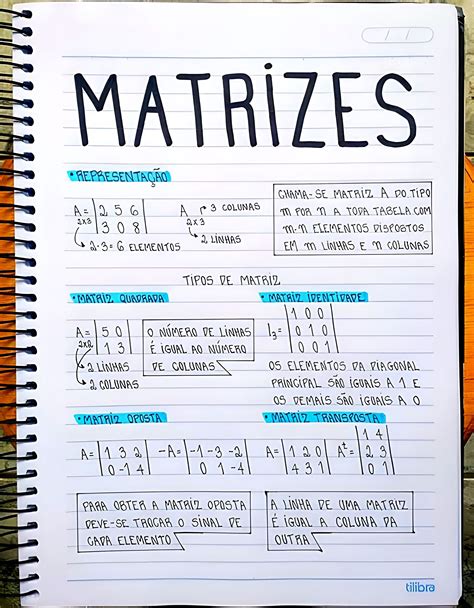 / /
MATRIZES
• REPRESENTAÇÃO
A = |2 5 6|
2x3 |3 0 8|
2·3 = 6 ELEMENTOS
A → 3 COLUNAS
2x3
2 LINHAS
CHAMA-SE MATRIZ A DO TIPO
m POR n A TODA TABELA COM
m·n ELEMENTOS DISPOSTOS
EM m LINHAS E n COLUNAS
TIPOS DE MATRIZ
• MATRIZ QUADRADA
A = |5 0|
2x2 |1 3|
2 LINHAS
2 COLUNAS
O NÚMERO DE LINHAS
É IGUAL AO NÚMERO
DE COLUNAS
• MATRIZ IDENTIDADE
|1 0 0|
I₃ = |0 1 0|
|0 0 1|
OS ELEMENTOS DA DIAGONAL
PRINCIPAL SÃO IGUAIS A 1 E
OS DEMAIS SÃO IGUAIS A 0
• MATRIZ OPOSTA
A = |1 3 2| -A = |-1 -3 -2|
|0 -1 4| |0 1 -4|
PARA OBTER A MATRIZ OPOSTA
DEVE-SE TROCAR O SINAL DE
CADA ELEMENTO
• MATRIZ TRANSPOSTA
|1 4|
A = |1 2 0| Aᵗ = |2 3|
|4 3 1| |0 1|
A LINHA DE UMA MATRIZ
É IGUAL A COLUNA DA
OUTRA
tilibra